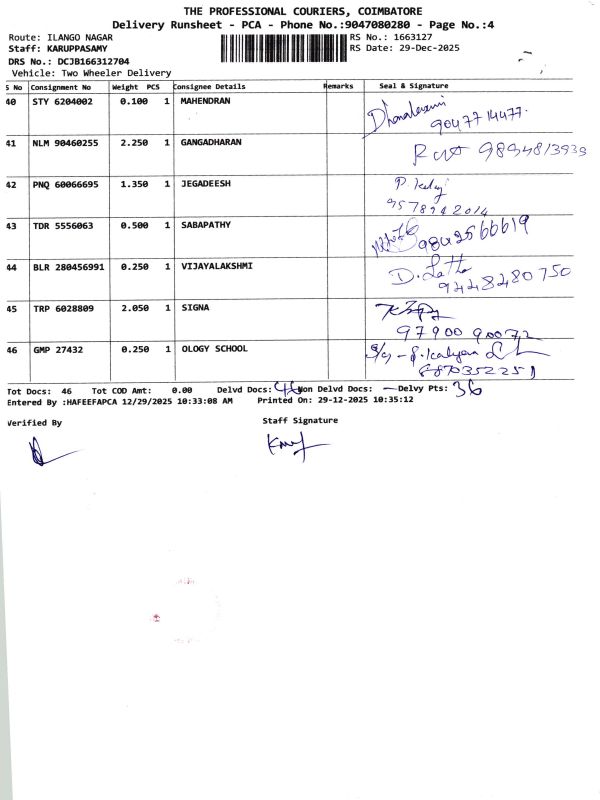 THE PROFESSIONAL COURIERS, COIMBATORE
Delivery Runsheet - PCA - Phone No.:9047080280 - Page No.:4
Route: ILANGO NAGAR RS No.: 1663127
Staff: KARUPPASAMY RS Date: 29-Dec-2025
DRS No.: DCJB166312704
Vehicle: Two Wheeler Delivery
S No Consignment No Weight PCS Consignee Details Remarks Seal & Signature
40 STY 6204002 0.100 1 MAHENDRAN
9047714477
41 NLM 90460255 2.250 1 GANGADHARAN
9894813939
42 PNQ 60066695 1.350 1 JEGADEESH
9578942014
43 TDR 5556063 0.500 1 SABAPATHY
9842566619
44 BLR 280456991 0.250 1 VIJAYALAKSHMI D. Latha
9448480750
45 TRP 6028809 2.050 1 SIGNA
97900 90072
46 GMP 27432 0.250 1 OLOGY SCHOOL
8870352251
Tot Docs: 46 Tot COD Amt: 0.00 Delvd Docs: 46 Non Delvd Docs: — Delvy Pts: 36
Entered By :HAFEEFAPCA 12/29/2025 10:33:08 AM Printed On: 29-12-2025 10:35:12
Verified By Staff Signature